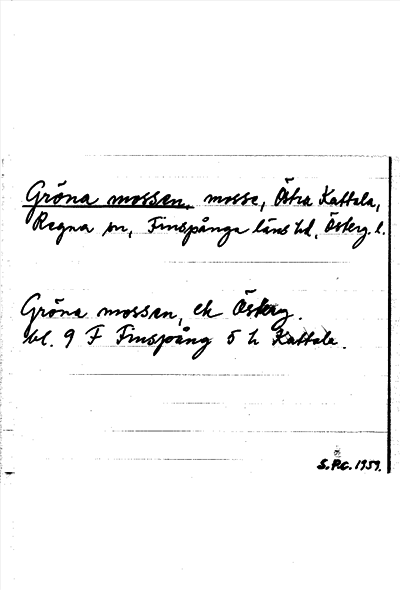 Gröna mossen, mosse, Östra Kattala,
Regna sn, Finspånga läns hd, Österg. l.
Gröna mossen, ek Österg.
bl. 9 F Finspång 5 h Kattala.
S.P.C. 1959.